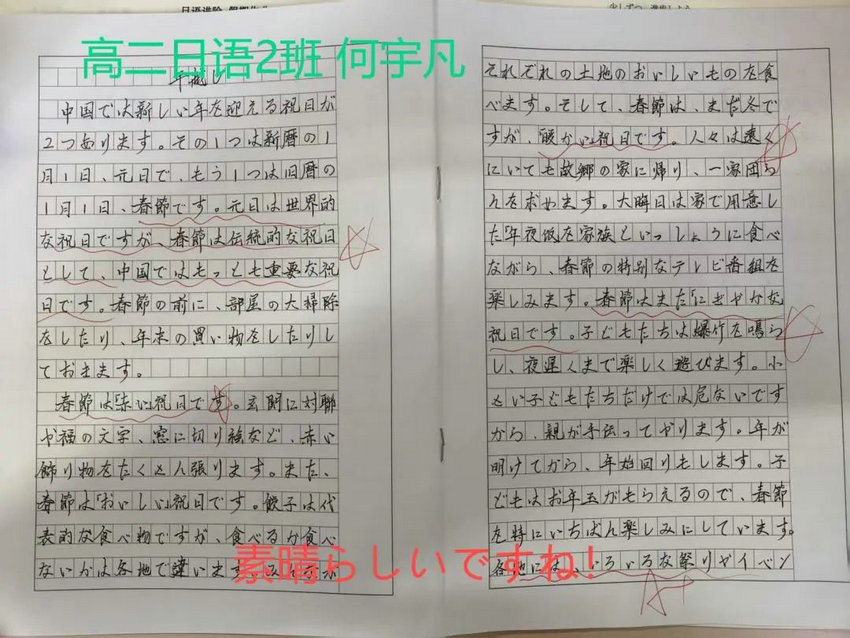 高二日语2班 何宇凡
中国では新しい年を迎える祝日が
2つあります。その1つは新暦の1
月1日、元日で、もう1つは旧暦の
1月1日、春節です。元日は世界的
な祝日ですが、春節は伝統的な祝日
として、中国ではもっとも重要な祝
日です。春節の前に、部屋の大掃除
をしたり、年末の買い物をしたりし
ておきます。
春節は「赤い」祝日です。玄関に対聯
や福の文字、窓に切り紙など、赤い
飾り物をたくさん張ります。また、
春節は「おいしい」祝日です。餃子は代
表的な食べ物ですが、食べるか食べ
ないかは各地で違います
素晴らしいですね!
それぞれの土地のおいしいものを食
べます。そして、春節は、まだ冬で
すが、「暖かい」祝日です。人々は遠く
にいても故郷の家に帰り、一家団ら
んを求めます。大晦日は家で用意し
た「年夜飯」を家族といっしょうに食べ
ながら、春節の特別なテレビ番組を
楽しみます。春節はまた「にぎやかな」
祝日です。子どもたちは爆竹を鳴ら
し、夜遅くまで楽しく遊びます。小
さい子どもたちだけでは危ないです
から、親が手伝ってやります。年が
明けてから、年始回りもします。子
どもはお年玉がもらえるので、春節
を特にいちばん楽しみにしています。
各地には、いろいろな祭りやイベン